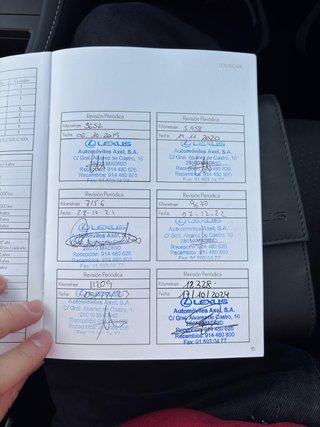 LEXUS CARE
Revisión Periódica
Kilometraje: 3652
Fecha: 02.10.2019
LEXUS
Automóviles Axel, S.A.
C/ Gral. Álvarez de Castro, 16
MADRID
Recepción: 914 480 626
Recambios: 914 480 800
Revisión Periódica
Kilometraje: 5.958
Fecha: 11.2020
LEXUS
Automóviles Axel, S.A.
C/ Gral. Álvarez de Castro, 16
28010 MADRID
Recepción: 914 480 626
Recambios: 914 480 800
Revisión Periódica
Kilometraje: 7156
Fecha: 28-10-21
LEXUS
28010 MADRID
Recepción: 914 480 626
Recambios: 914 480 800
Fax: 91 593 04 77
Revisión Periódica
Kilometraje: 9470
Fecha: 07-12-22
LEXUS
Automóviles Axel, S.A.
28010 MADRID
Recepción: 914 480 626
Recambios: 914 480 800
Fax: 91 593 04 77
Revisión Periódica
Kilometraje: 11209
Fecha:
LEXUS
Automóviles Axel, S.A.
C/ Gral. Álvarez de Castro,
28010 MADRID
Recepción: 914 480
Recambios: 914 480 800
Fax: 91 593 04 77
Revisión Periódica
Kilometraje: 12.328
Fecha: 17/10/2024
LEXUS
Automóviles Axel, S.A.
C/ Gral. Álvarez de Castro, 16
28010 MADRID
Recepción: 914 480 626
Recambios: 914 480 800
Fax: 91 593 04 77
15